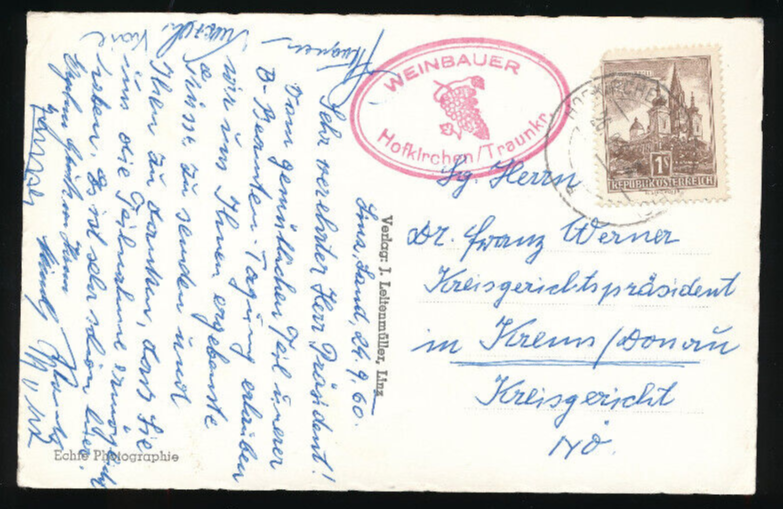 WEINBAUER
Hofkirchen/Traunkr.
HOFKIRCHEN
1S
REPUBLIK ÖSTERREICH
Sg. Herrn
Dr. Franz Werner
Kreisgerichtspräsident
in Krems/Donau
Kreisgericht
NÖ.
Verlag: J. Leitenmüller, Linz
Linz, Land, 24.9.60.
Sehr verehrter Herr Präsident!
Vom gemütlichen Teil unserer
B-Beamten-Tagung erlauben
wir uns Ihnen ergebenste
Grüsse zu senden und
Ihnen zu danken, dass Sie
uns die Teilnahme ermöglicht
haben. Es ist sehr schön hier.
Echte Photographie